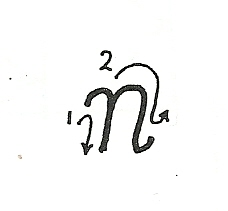 2
1 n